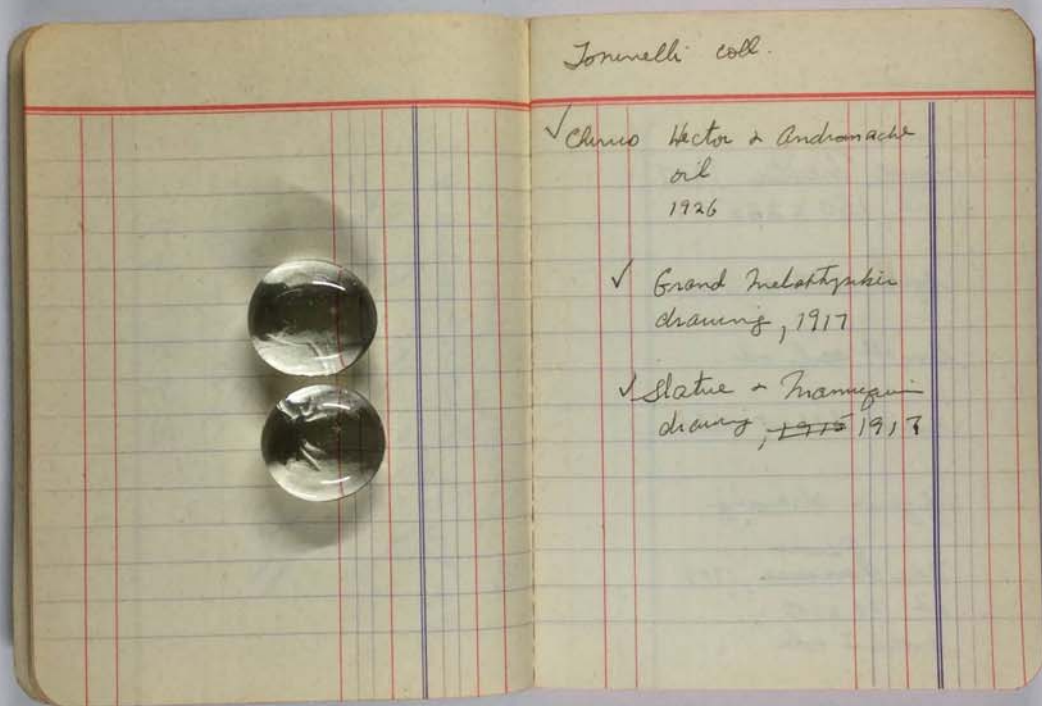 Toninelli coll.
✓ Chirico Hector & Andromache
oil
1926
✓ Grand Metaphysician
drawing, 1917
✓ Statue & Mannequin
drawing, ~~1915~~ 1917